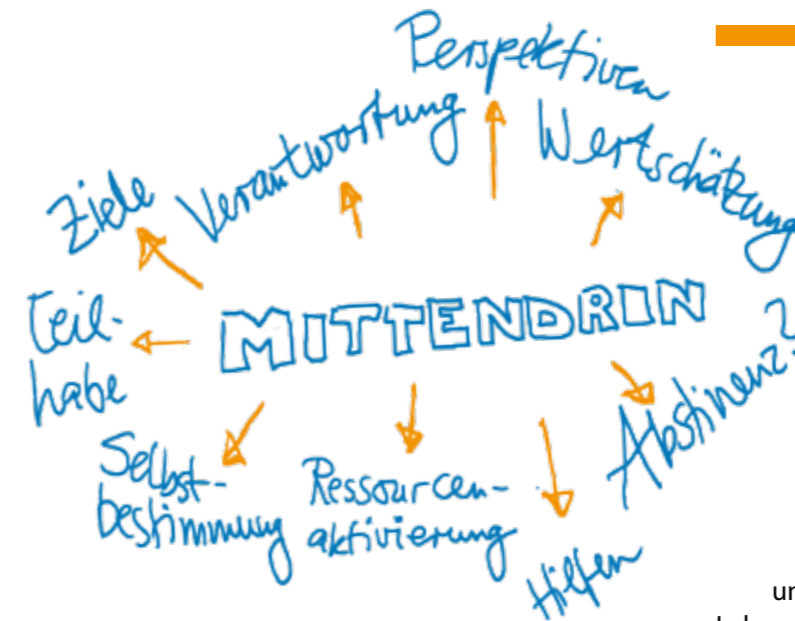 Perspektiven
Verantwortung
Wertschätzung
Ziele
MITTENDRIN
Teil-
habe
Abstinenz?
Selbst-
bestimmung
Ressourcen-
aktivierung
Hilfen